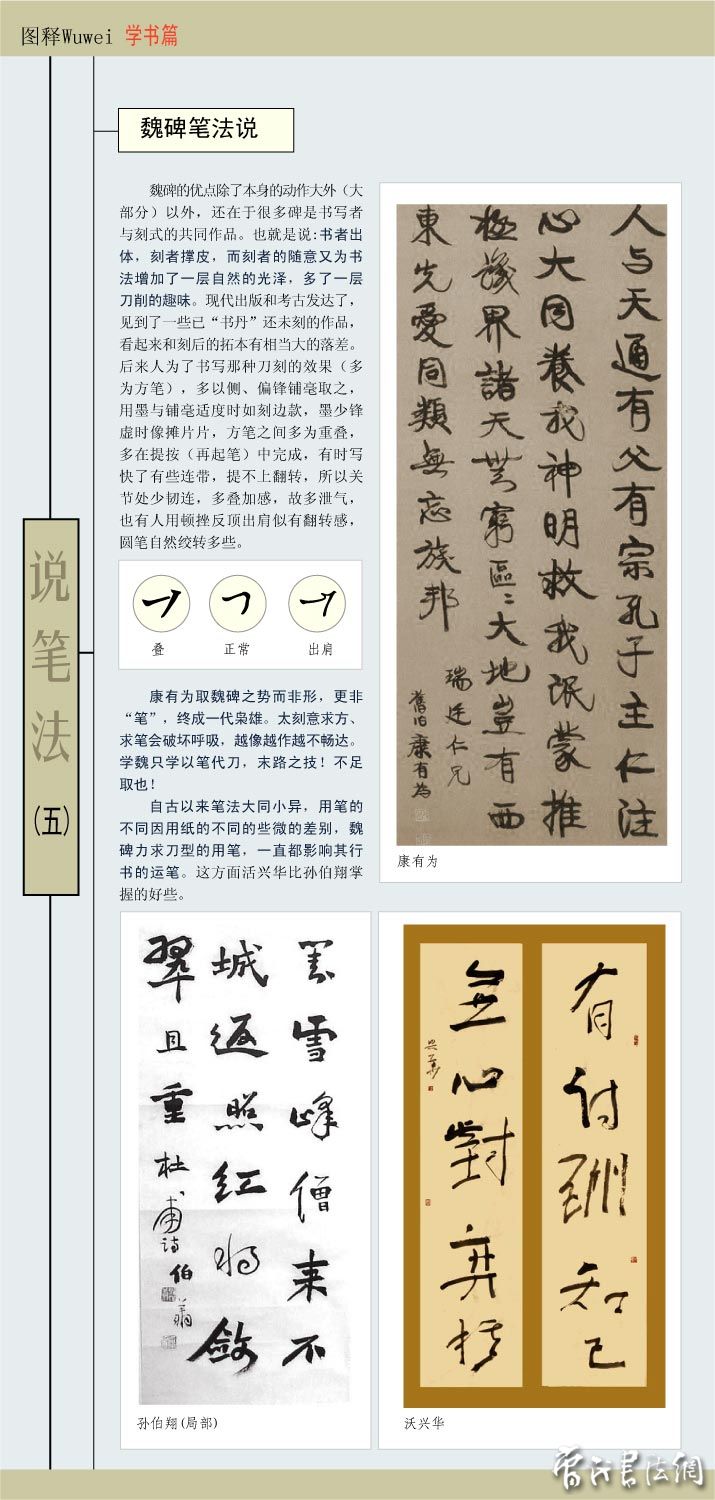 图释Wuwei 学书篇
魏碑笔法说
说笔法
(五)
魏碑的优点除了本身的动作大外（大
部分）以外，还在于很多碑是书写者
与刻式的共同作品。也就是说:书者出
体，刻者撑皮，而刻者的随意又为书
法增加了一层自然的光泽，多了一层
刀削的趣味。现代出版和考古发达了，
见到了一些已“书丹”还未刻的作品，
看起来和刻后的拓本有相当大的落差。
后来人为了书写那种刀刻的效果（多
为方笔），多以侧、偏锋铺毫取之，
用墨与铺毫适度时如刻边款，墨少锋
虚时像摊片片，方笔之间多为重叠，
多在提按（再起笔）中完成，有时写
快了有些连带，提不上翻转，所以关
节处少韧连，多叠加感，故多泄气，
也有人用顿挫反顶出肩似有翻转感，
圆笔自然绞转多些。
叠 正常 出肩
康有为取魏碑之势而非形，更非
“笔”，终成一代枭雄。太刻意求方、
求笔会破坏呼吸，越像越作越不畅达。
学魏只学以笔代刀，末路之技！不足
取也！
自古以来笔法大同小异，用笔的
不同因用纸的不同的些微的差别，魏
碑力求刀型的用笔，一直都影响其行
书的运笔。这方面活兴华比孙伯翔掌
握的好些。
人与天通有父有宗孔子主仁注
心大同养我神明救我氓蒙推
极诸界諸天無窮區區大地豈有西
東先愛同類無忘族邦
瑞廷仁兄
康有为
康有為
雪峰僧来不
城返照红将敛
翠且重 杜甫诗 伯翔
孙伯翔(局部)
有付酬知己
無心對弈棋
兴华
沃兴华
书法網